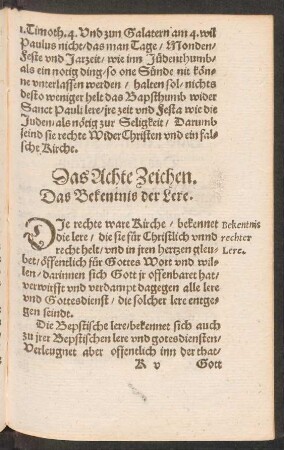 1.Timoth.4. Vnd zum Galatern am 4. wil
Paulus nicht/das man Tage/Monden/
Feste vnd Jarzeit/ wie im Jüdenthumb/
als ein nötig ding/so one Sünde nit kön-
ne vnterlassen werden / halten sol/nichts
desto weniger helt das Bapsthumb wider
Sanct Pauli lere/jre zeit vnd Festa wie die
Juden/als nötig zur Seligkeit / Darumb
seind sie rechte WiderChristen vnd ein fal-
sche Kirche.
Das Achte Zeichen.
Das Bekentnis der Lere.
DJe rechte ware Kirche / bekennet
die lere / die sie für Christlich vnnd
recht helt/ vnd in jren hertzen glen-
bet/öffentlich für Gottes Wort vnd wil-
len/darinnen sich Gott jr offenbaret hat/
verwirfft vnd verdampt dagegen alle lere
vnd Gottesdienst/ die solcher lere entge-
gen seindt.
Bekentnis
rechter
Lere.
Die Bepstische lere/bekennet sich auch
zu jrer Bepstischen lere vnd gotesdiensten/
Verleugnet aber offentlich inn der that/
K v Gott